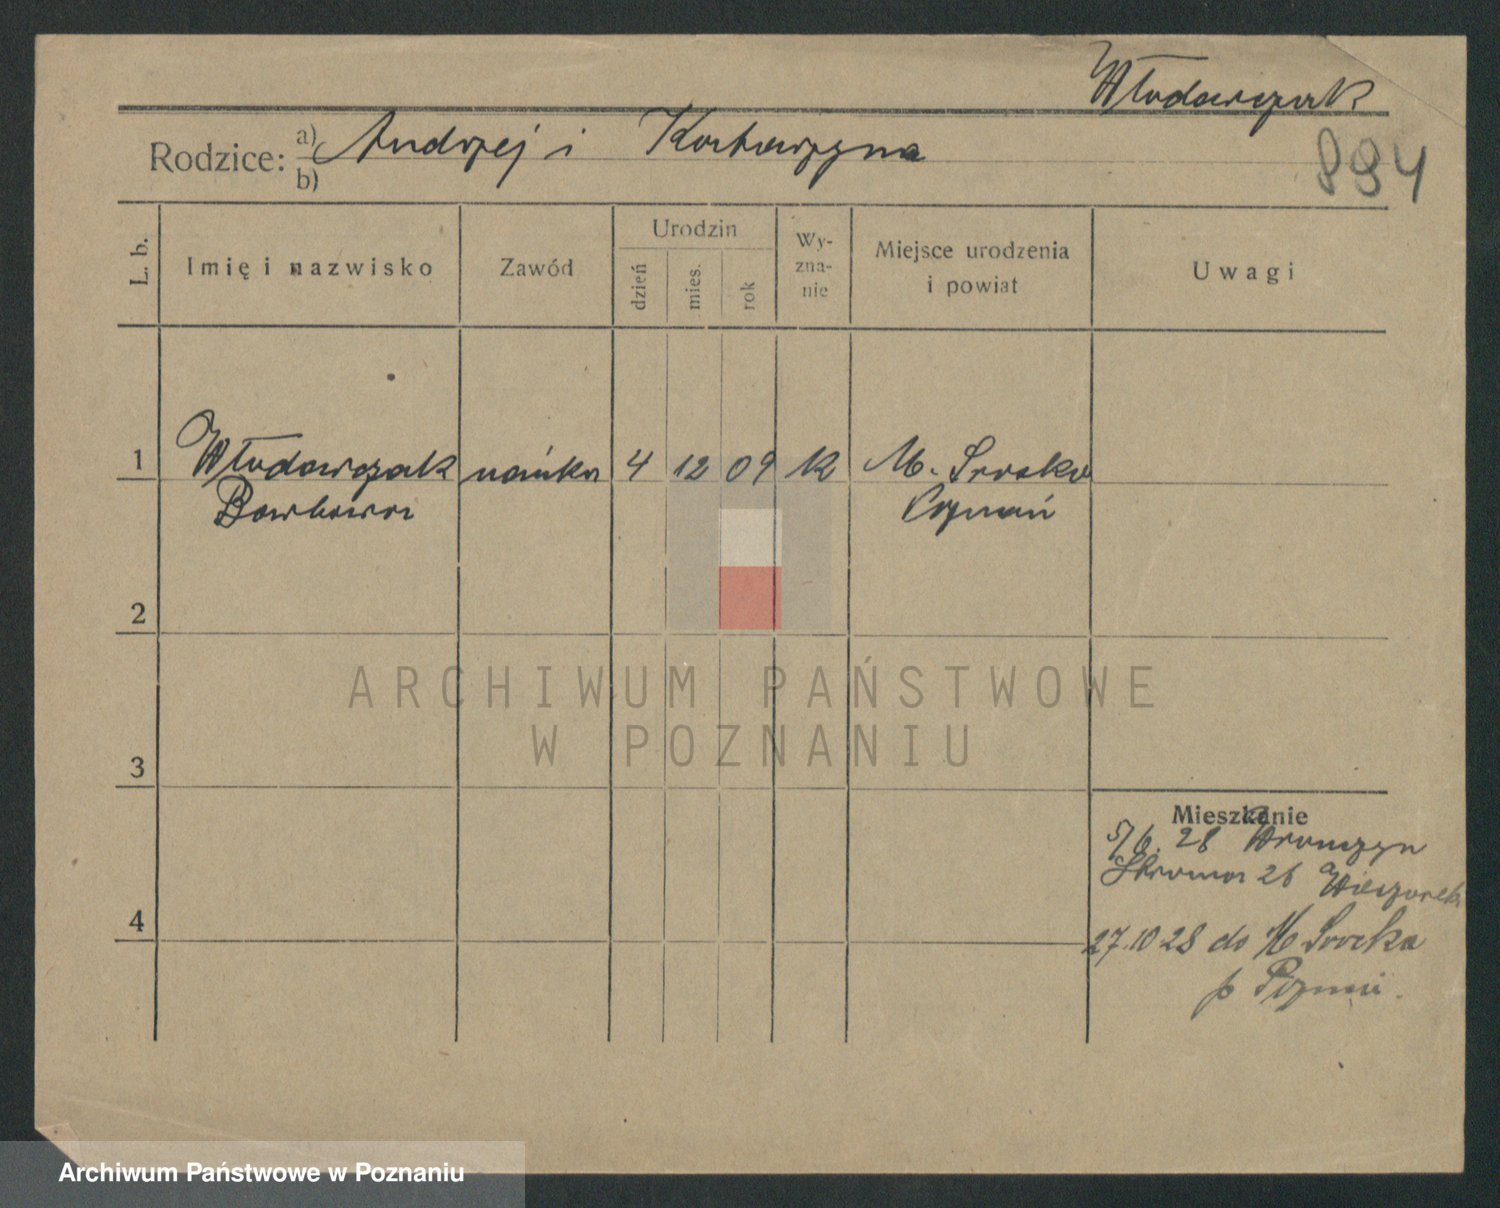 Włodarczak
Rodzice: a) Andrzej i Katarzyna
b)
894
L. b.
Imię i nazwisko
Zawód
Urodzin
dzień
mies.
rok
Wy-
zna-
nie
Miejsce urodzenia
i powiat
Uwagi
1 Włodarczak niańka 4 12 09 K M. Srocko
Barbara Poznań
2
ARCHIWUM PAŃSTWOWE
W POZNANIU
3
Mieszkanie
5/6. 28 Wronczyn
26 Wieczorek
4
27.10 28 do M Srocka
p Poznań.
Archiwum Państwowe w Poznaniu